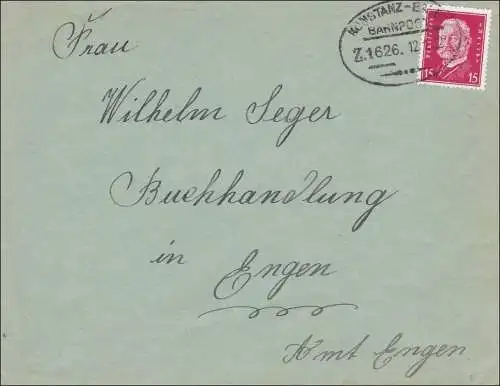 KONSTANZ-
BAHNPOST
Z.1626. 12
15 15
Frau
Wilhelm Seger
Buchhandlung
in
Engen
Amt Engen